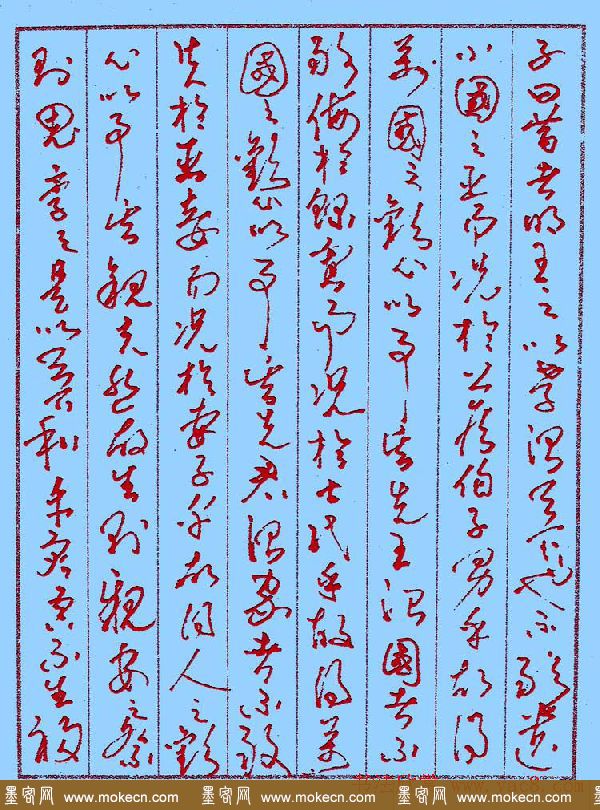 子曰昔者明王之以孝治天下也不敢遺
小國之臣而況於公侯伯子男乎故得
萬國之歡心以事其先王治國者不
敢侮於鰥寡而況於士民乎故得萬
國之歡心以事其先君治家者不敢
失於臣妾而況於妻子乎故得人之歡
心以事其親夫然故生則親安之祭
則鬼享之是以天下和平災害不生禍
墨客网 www.mokecn.com 墨客网 www.mokecn.com 墨客网 www.mokecn.com